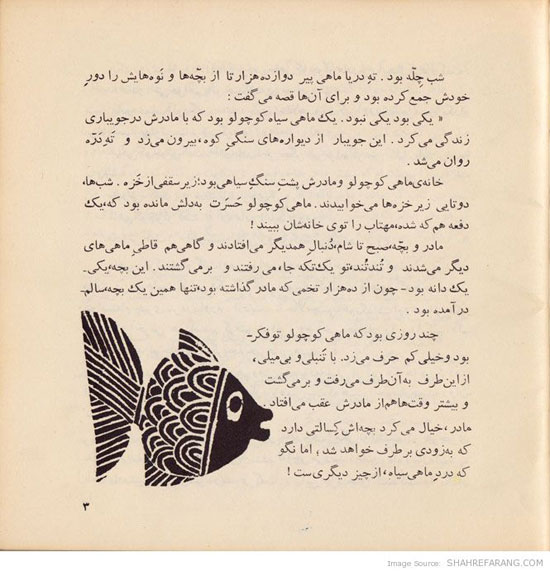 شب چله بود . ته دریا ماهی پیر دوازده هزار تا از بچّه‌ها و نوه‌هایش را دورِ
خودش جمع کرده بود و برای آن‌ها قصه می گفت :
« یکی بود یکی نبود . یک ماهی سیاه کوچولو بود که با مادرش در جویباری
زندگی می کرد . این جویبار از دیواره‌های سنگیِ کوه، بیرون می‌زد و تَهِ درّه
روان می‌شد .
خانه‌ی ماهی کوچولو و مادرش پشتِ سنگِ سیاهی بود؛ زیر سقفی از خَزه . شب‌ها،
دوتایی زیر خزه‌ها می خوابیدند . ماهی کوچولو حَسرَت به‌دلش مانده بود که، یک
دفعه هم که شده، مهتاب را توی خانه‌شان ببیند !
مادر و بچّه، صبح تا شام، دُنبالِ همدیگر می‌افتادند و گاهی هم قاطیِ ماهی‌های
دیگر می‌شدند و تُندتُند، تو یک تکه جا، می رفتند و بر می گشتند . این بچه، یکی–
یک دانه بود – چون از ده‌هزار تخمی که مادر گذاشته بود، تنها همین یک بچه، سالم–
در آمده بود .
چند روزی بود که ماهی کوچولو تو فکر–
بود و خیلی کم حرف می‌زد. با تَنبلی و بی‌میلی،
از این طرف به‌آن‌طرف می‌رفت و بر می گشت
و بیشتر وقت‌ها هم از مادرش عقب می‌افتاد .
مادر، خیال می کرد بچه‌اش کِسالتی دارد
که به‌زودی بر طرف خواهد شد، اما نگو
که دردِ ماهی سیاه، از چیز دیگری ست !
۳
Image Source: SHAHREFARANG.COM